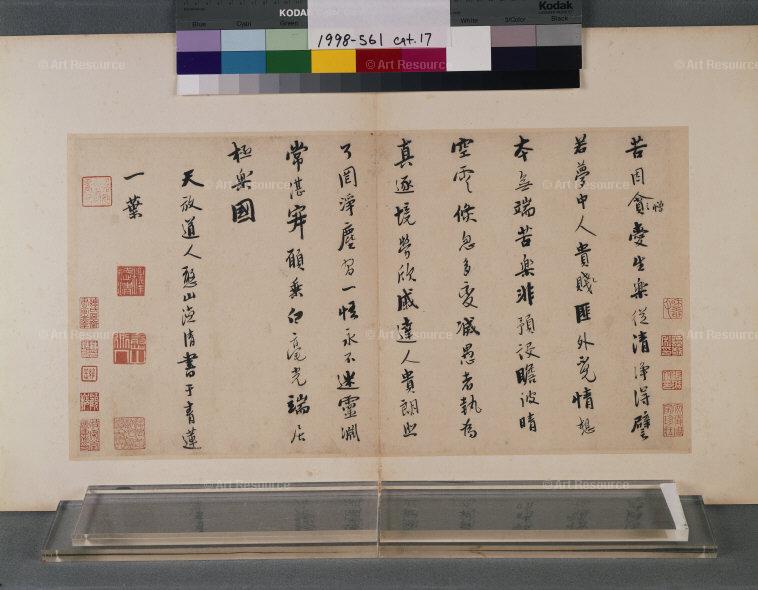 KODAK
Kodak
Blue
Cyan
Green
White
3/Color
Black
1998-561 cat.17
苦因貪愛生樂從清淨得譬
憎
若夢中人貴賤匪外覓情想
本無端苦樂非預設瞻彼晴
空雲倏忽多變滅愚者執為
真逐境勞欣戚達人貴朗照
了罔淨塵習一悟永不迷靈淵
常湛寂願乘白毫光端居
極樂國
天放道人憨山德清書于青蓮
一葉
© Art Resource
© Art Resource
© Art Resource
© Art Resource
© Art Resource
© Art Resource
© Art Resource
© Art Resource
© Art Resource
© Art Resource
© Art Resource
© Art Resource